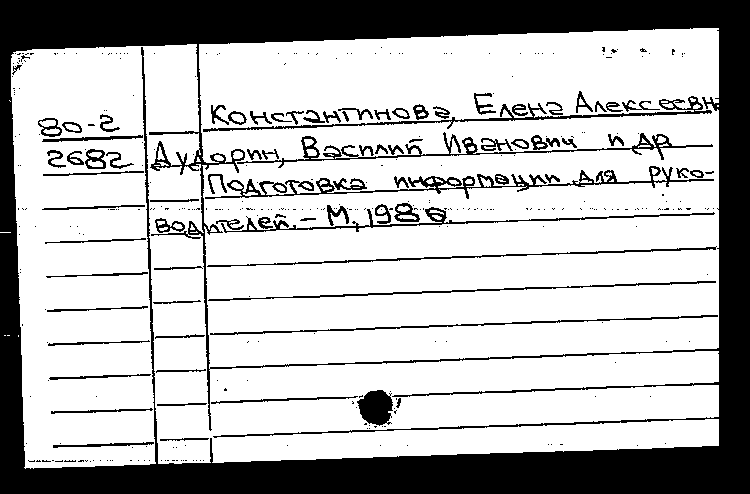 Константинова, Елена Алексеевна
80-2
2682 Дудорин, Василий Иванович и др
Подготовка информации для руко-
водителей. - М, 1980.